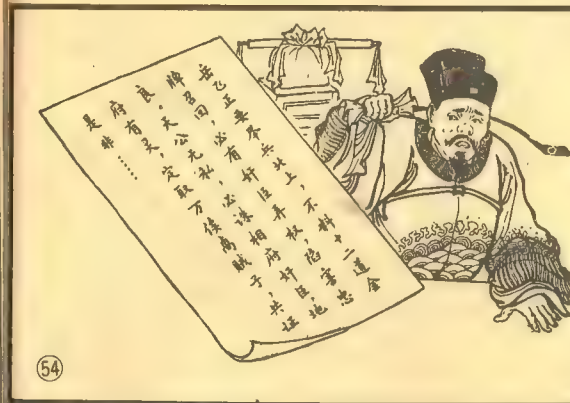 岳飞正要举兵北上，不料十二道金
牌召回，必有奸臣弄权，陷害忠
良。天公无私，必诛相府奸臣，地
府有灵，定取万俟卨贼子，共证
是非……
54